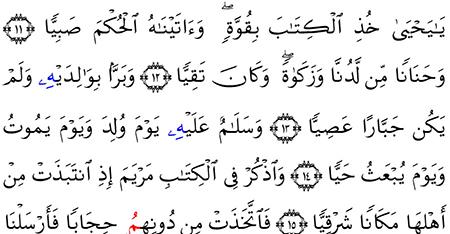 يَٰيَحْيَىٰ خُذِ ٱلْكِتَٰبَ بِقُوَّةٍۖ وَءَاتَيْنَٰهُ ٱلْحُكْمَ صَبِيًّا ۝١١
وَحَنَانًا مِّن لَّدُنَّا وَزَكَوٰةًۖ وَكَانَ تَقِيًّا ۝١٢ وَبَرًّۢا بِوَٰلِدَيْهِۦ وَلَمْ
يَكُن جَبَّارًا عَصِيًّا ۝١٣ وَسَلَٰمٌ عَلَيْهِۦ يَوْمَ وُلِدَ وَيَوْمَ يَمُوتُ
وَيَوْمَ يُبْعَثُ حَيًّا ۝١٤ وَٱذْكُرْ فِى ٱلْكِتَٰبِ مَرْيَمَ إِذِ ٱنتَبَذَتْ مِنْ
أَهْلِهَا مَكَانًا شَرْقِيًّا ۝١٥ فَٱتَّخَذَتْ مِن دُونِهِمُۥ حِجَابًا فَأَرْسَلْنَا